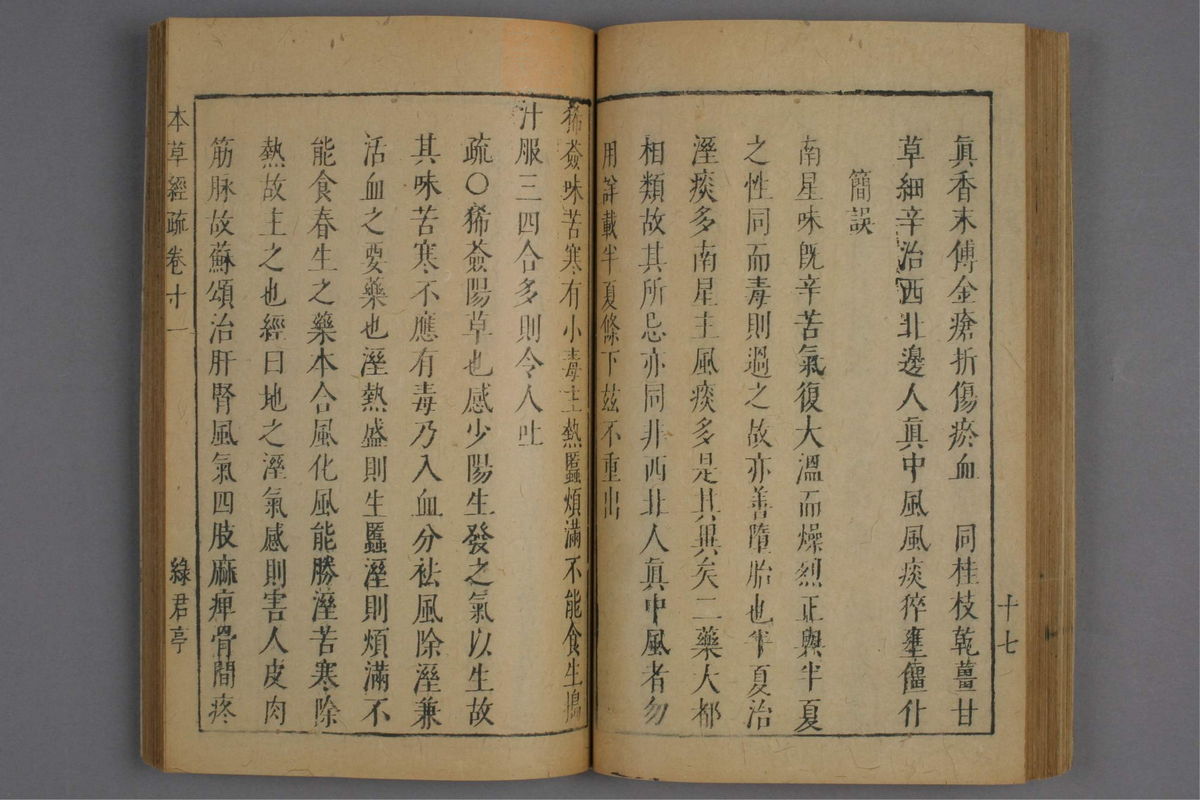 十七
眞香末傅金瘡折傷瘀血　同桂枝乾薑甘
草細辛治西北邊人眞中風風痰猝壅僵仆
簡誤
南星味旣辛苦氣復大溫而燥烈正與半夏
之性同而毒則過之故亦善墮胎也半夏治
溼痰多南星主風痰多是其異矣二藥大都
相類故其所忌亦同非西北人眞中風者勿
用詳載半夏條下玆不重出
豨薟味苦寒有小毒主熱䘌煩滿不能食生搗
汁服三四合多則令人吐
疏○豨薟陽草也感少陽生發之氣以生故
其味苦寒不應有毒乃入血分祛風除溼兼
活血之要藥也溼熱盛則生䘌溼則煩滿不
能食春生之藥本合風化風能勝溼苦寒除
熱故主之也經曰地之溼氣感則害人皮肉
筋脉故蘇頌治肝腎風氣四肢麻痺骨間疼
本草經疏卷十一
綠君亭